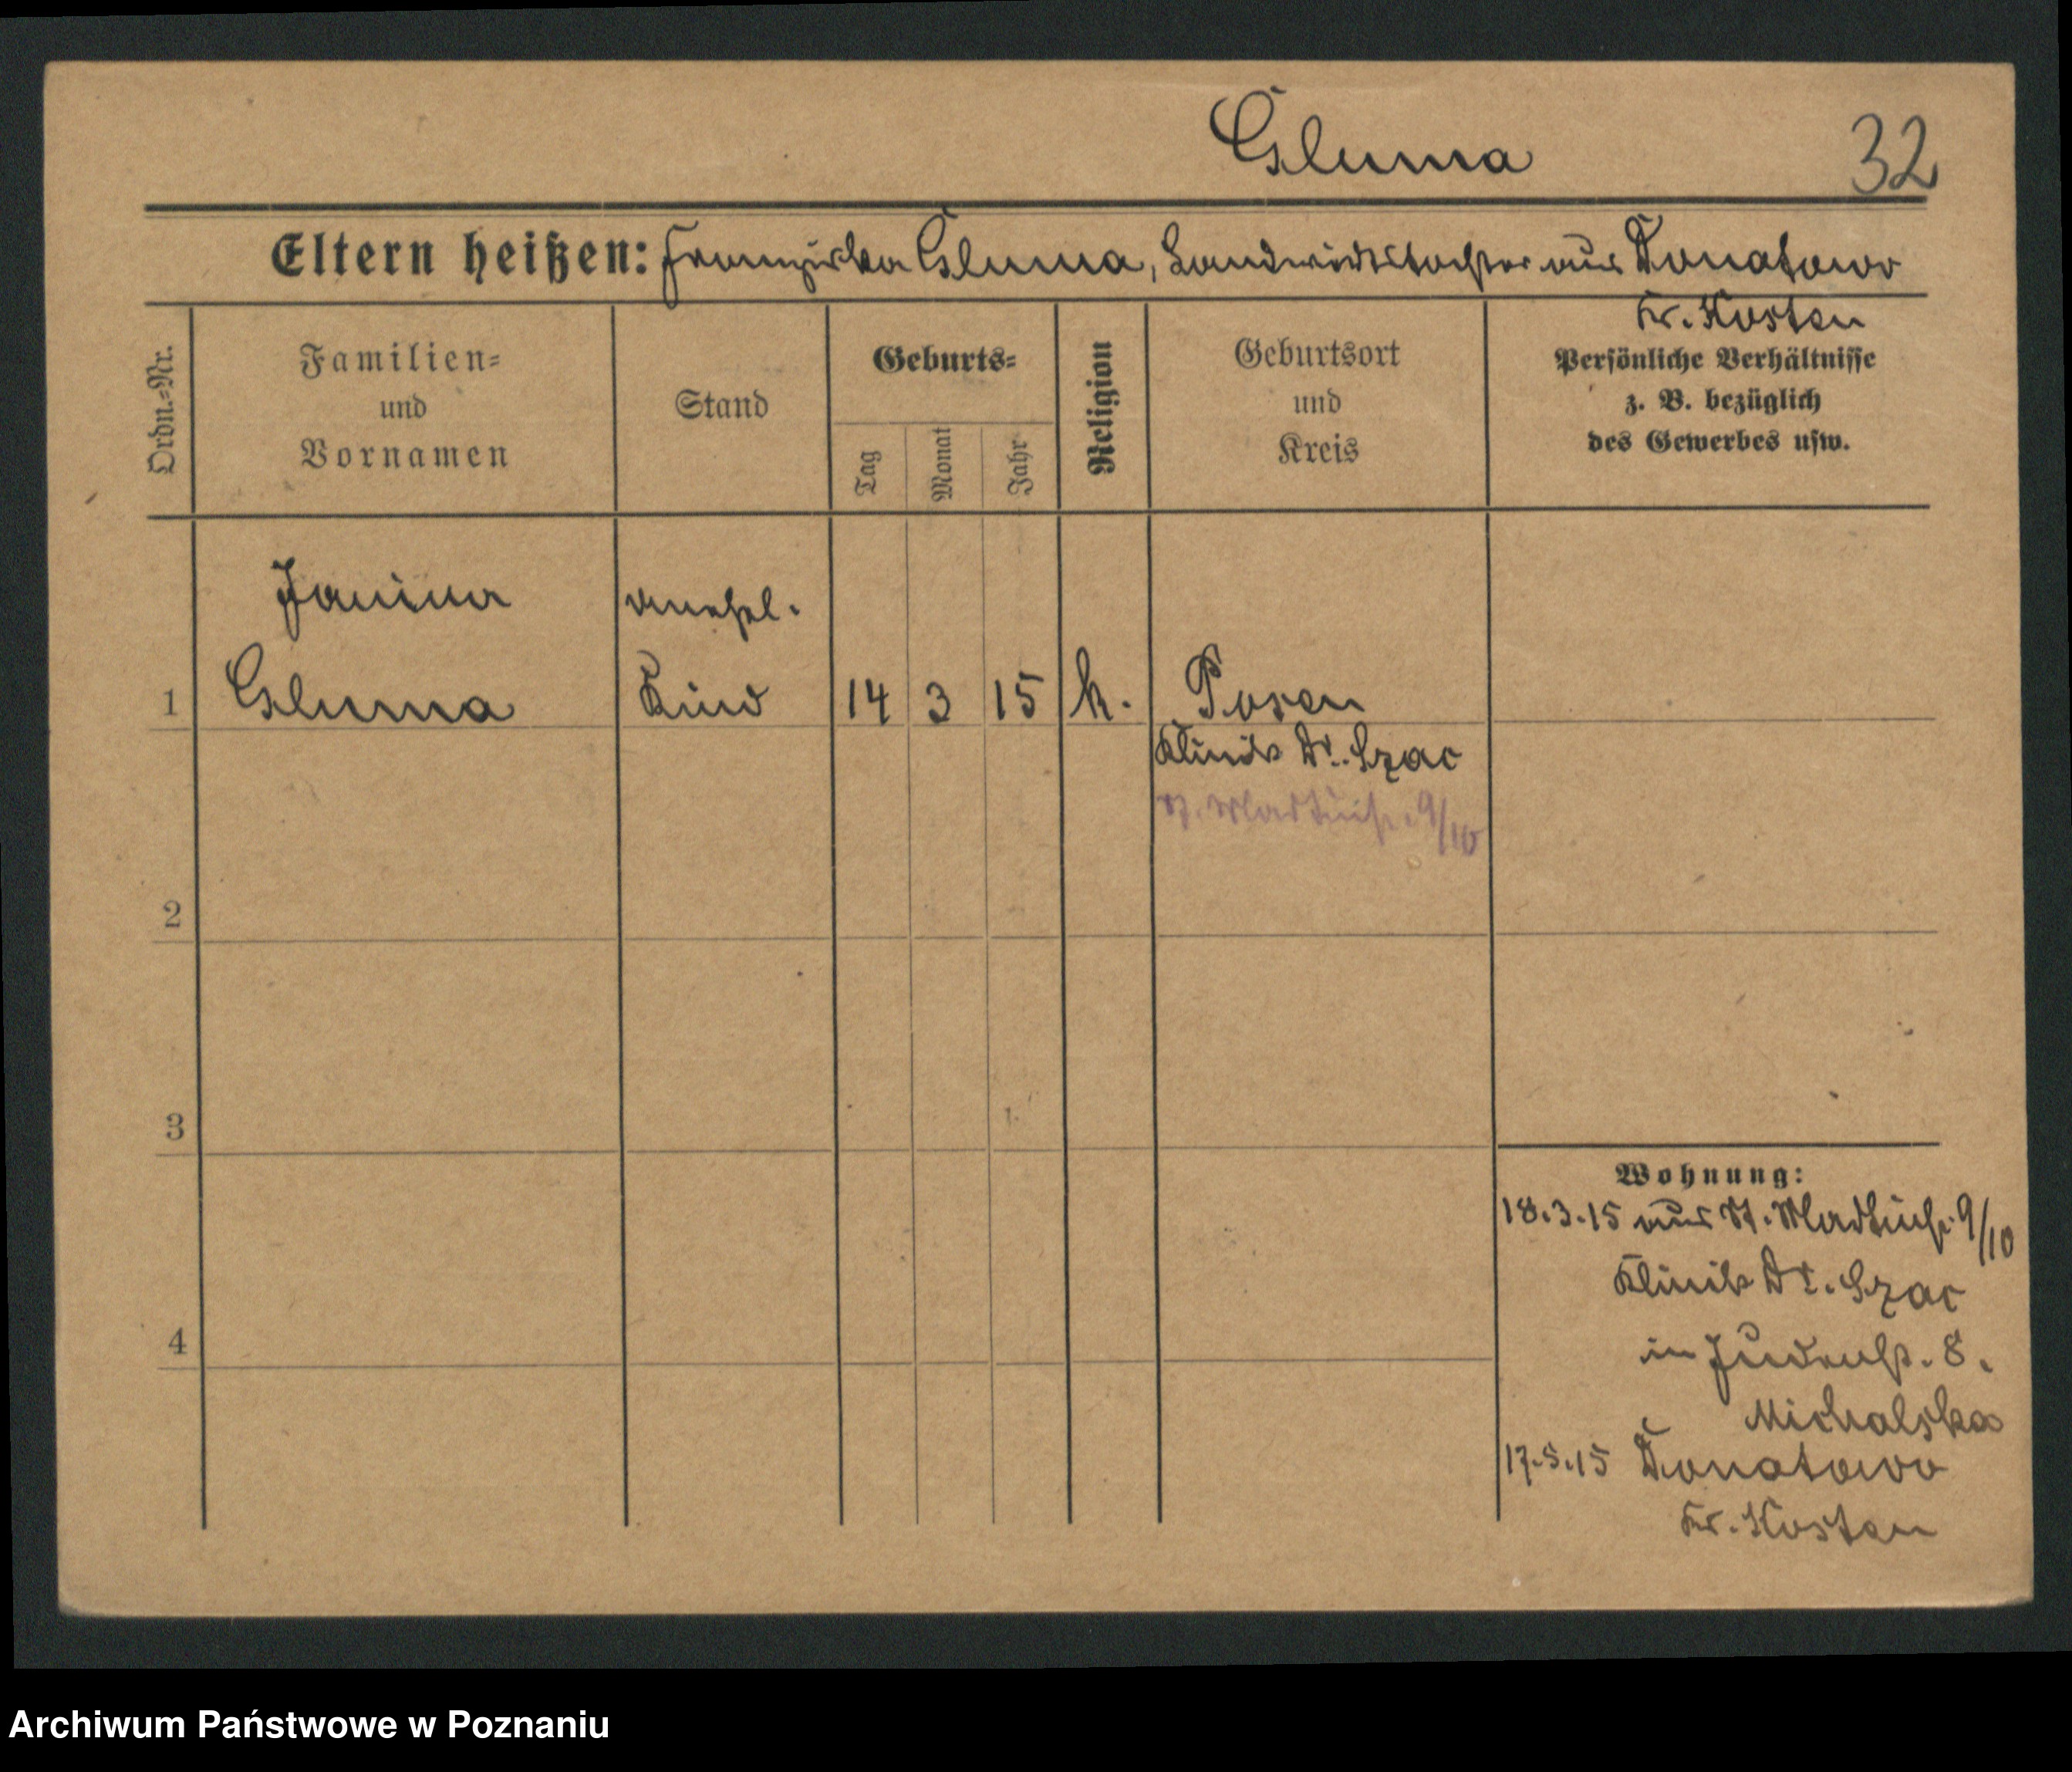 Gluma 32
Eltern heißen: Franziska Gluma, Landwirtstochter aus Donatowo
Kr. Kosten
Ordn.=Nr.
Familien=
und
Vornamen
Stand
Geburts=
Tag
Monat
Jahr
Religion
Geburtsort
und
Kreis
Persönliche Verhältnisse
z. B. bezüglich
des Gewerbes usw.
Janina unehel.
1 Gluma Kind 14 3 15 k. Posen
Klinik Dr. Szac
St. Martinstr. 9/10
2
3
4
Wohnung:
18.3.15 aus St. Martinstr. 9/10
Klinik Dr. Szac
in Judenstr. 8.
Michalska
17.5.15 Donatowo
Kr. Kosten
Archiwum Państwowe w Poznaniu